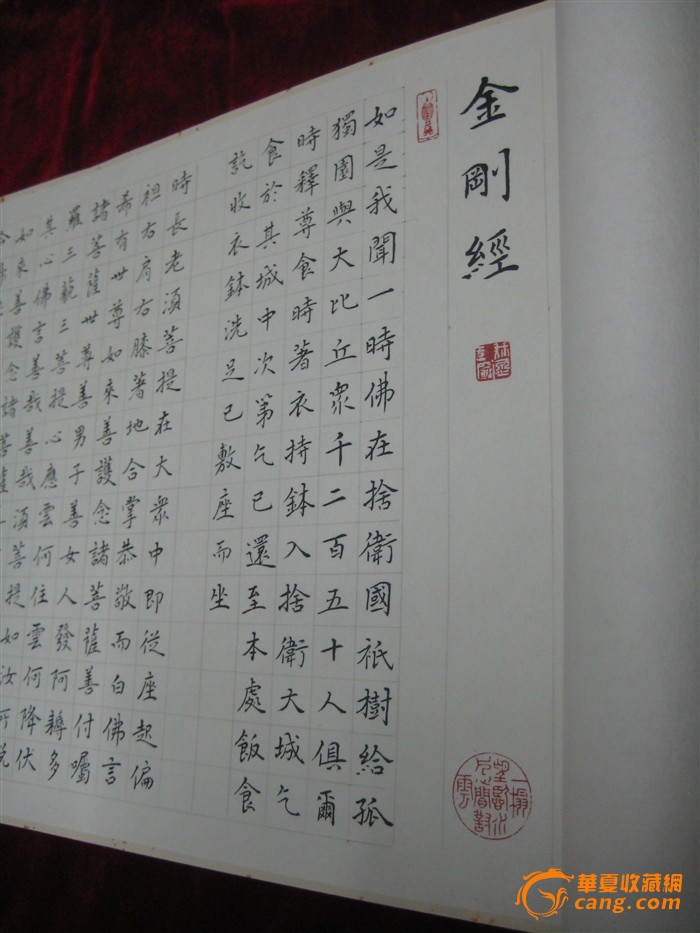 金剛經
如是我聞一時佛在捨衛國祇樹給孤
獨園與大比丘衆千二百五十人俱爾
時釋尊食時著衣持鉢入捨衛大城乞
食於其城中次第乞已還至本處飯食
訖收衣鉢洗足已敷座而坐
時長老湏菩提在大衆中即從座起偏
袒右肩右膝著地合掌恭敬而白佛言
希有世尊如來善護念諸菩薩善付囑
諸菩薩世尊善男子善女人發阿耨多
羅三藐三菩提心應雲何住雲何降伏
其心佛言善哉善哉湏菩提如汝所說
如來善護念諸菩薩
華夏收藏網
cang.com